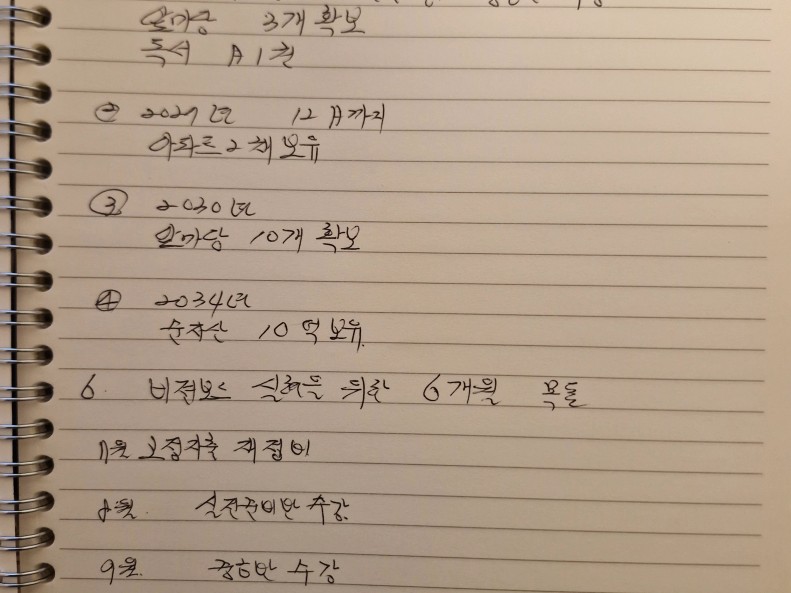 앞마당 3개 확보
독서 A 1권
② 2027년 12月까지
아파트 2채 보유
③ 2030년
앞마당 10개 확보
④ 2034년
순자산 10억 보유.
6. 비전보드 실현을 위한 6개월 목표
7월 재점비
8월. 실전준비반 수강
9월. 중급반 수강